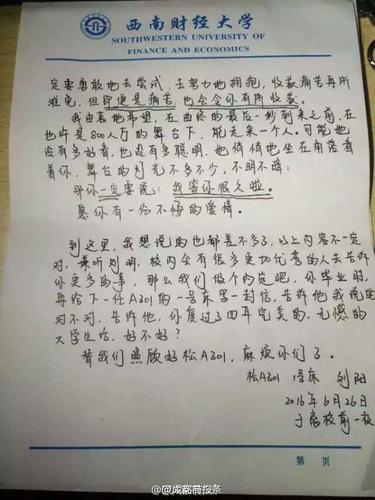 西南财经大学
SOUTHWESTERN UNIVERSITY OF
FINANCE AND ECONOMICS
定要勇敢地去尝试,去努力地拥抱,收获痛苦再所
难免,但即便是痛苦,也会令你有所收获。
我由衷地希望,在曲终的最后一秒前来之前,在
也许是800人厅的舞台下,能走来一个人。可能她
没有多好看,也没有多聪明,她悄悄地坐在角落看
着你,舞台的灯光不多不少,不明不暗;
那你一定要说:我等你很久啦。
愿你有一份不悔的爱情。
到这里,我想说的也都差不多了,以上内容不一定
对,兼听则明,校内会有很多更加优秀的人去告诉
你更多的事,那么我们做个约定吧,你毕业时,
再给下一任A301的一号床写一封信,告诉他我说的
对不对,告诉他,你度过了四年完美的,无憾的
大学生活,好不好?
替我们照顾好松A301,麻烦你们了。
松A301 1号床 刘阳
2016年6月26日
于离校前一夜
第 页
@成都商报条